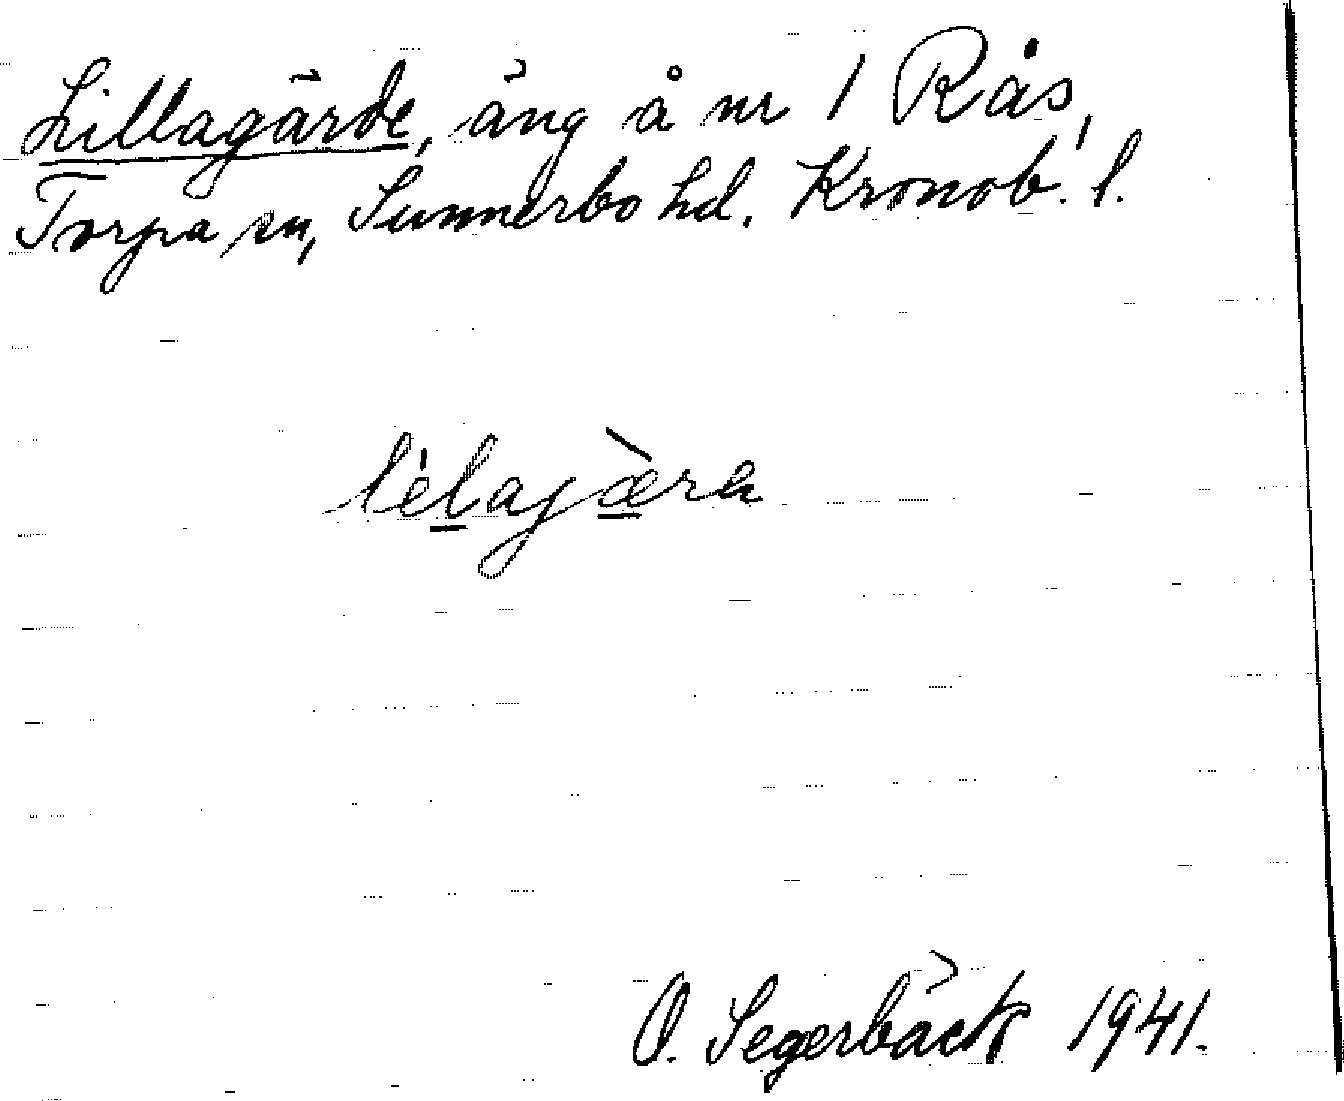 Lillagärde, äng å nr 1 Rås,
Torpa sn, Sunnerbo hd. Kronob. l.
lèlajæ̀ra
O. Segerbäck 1941.